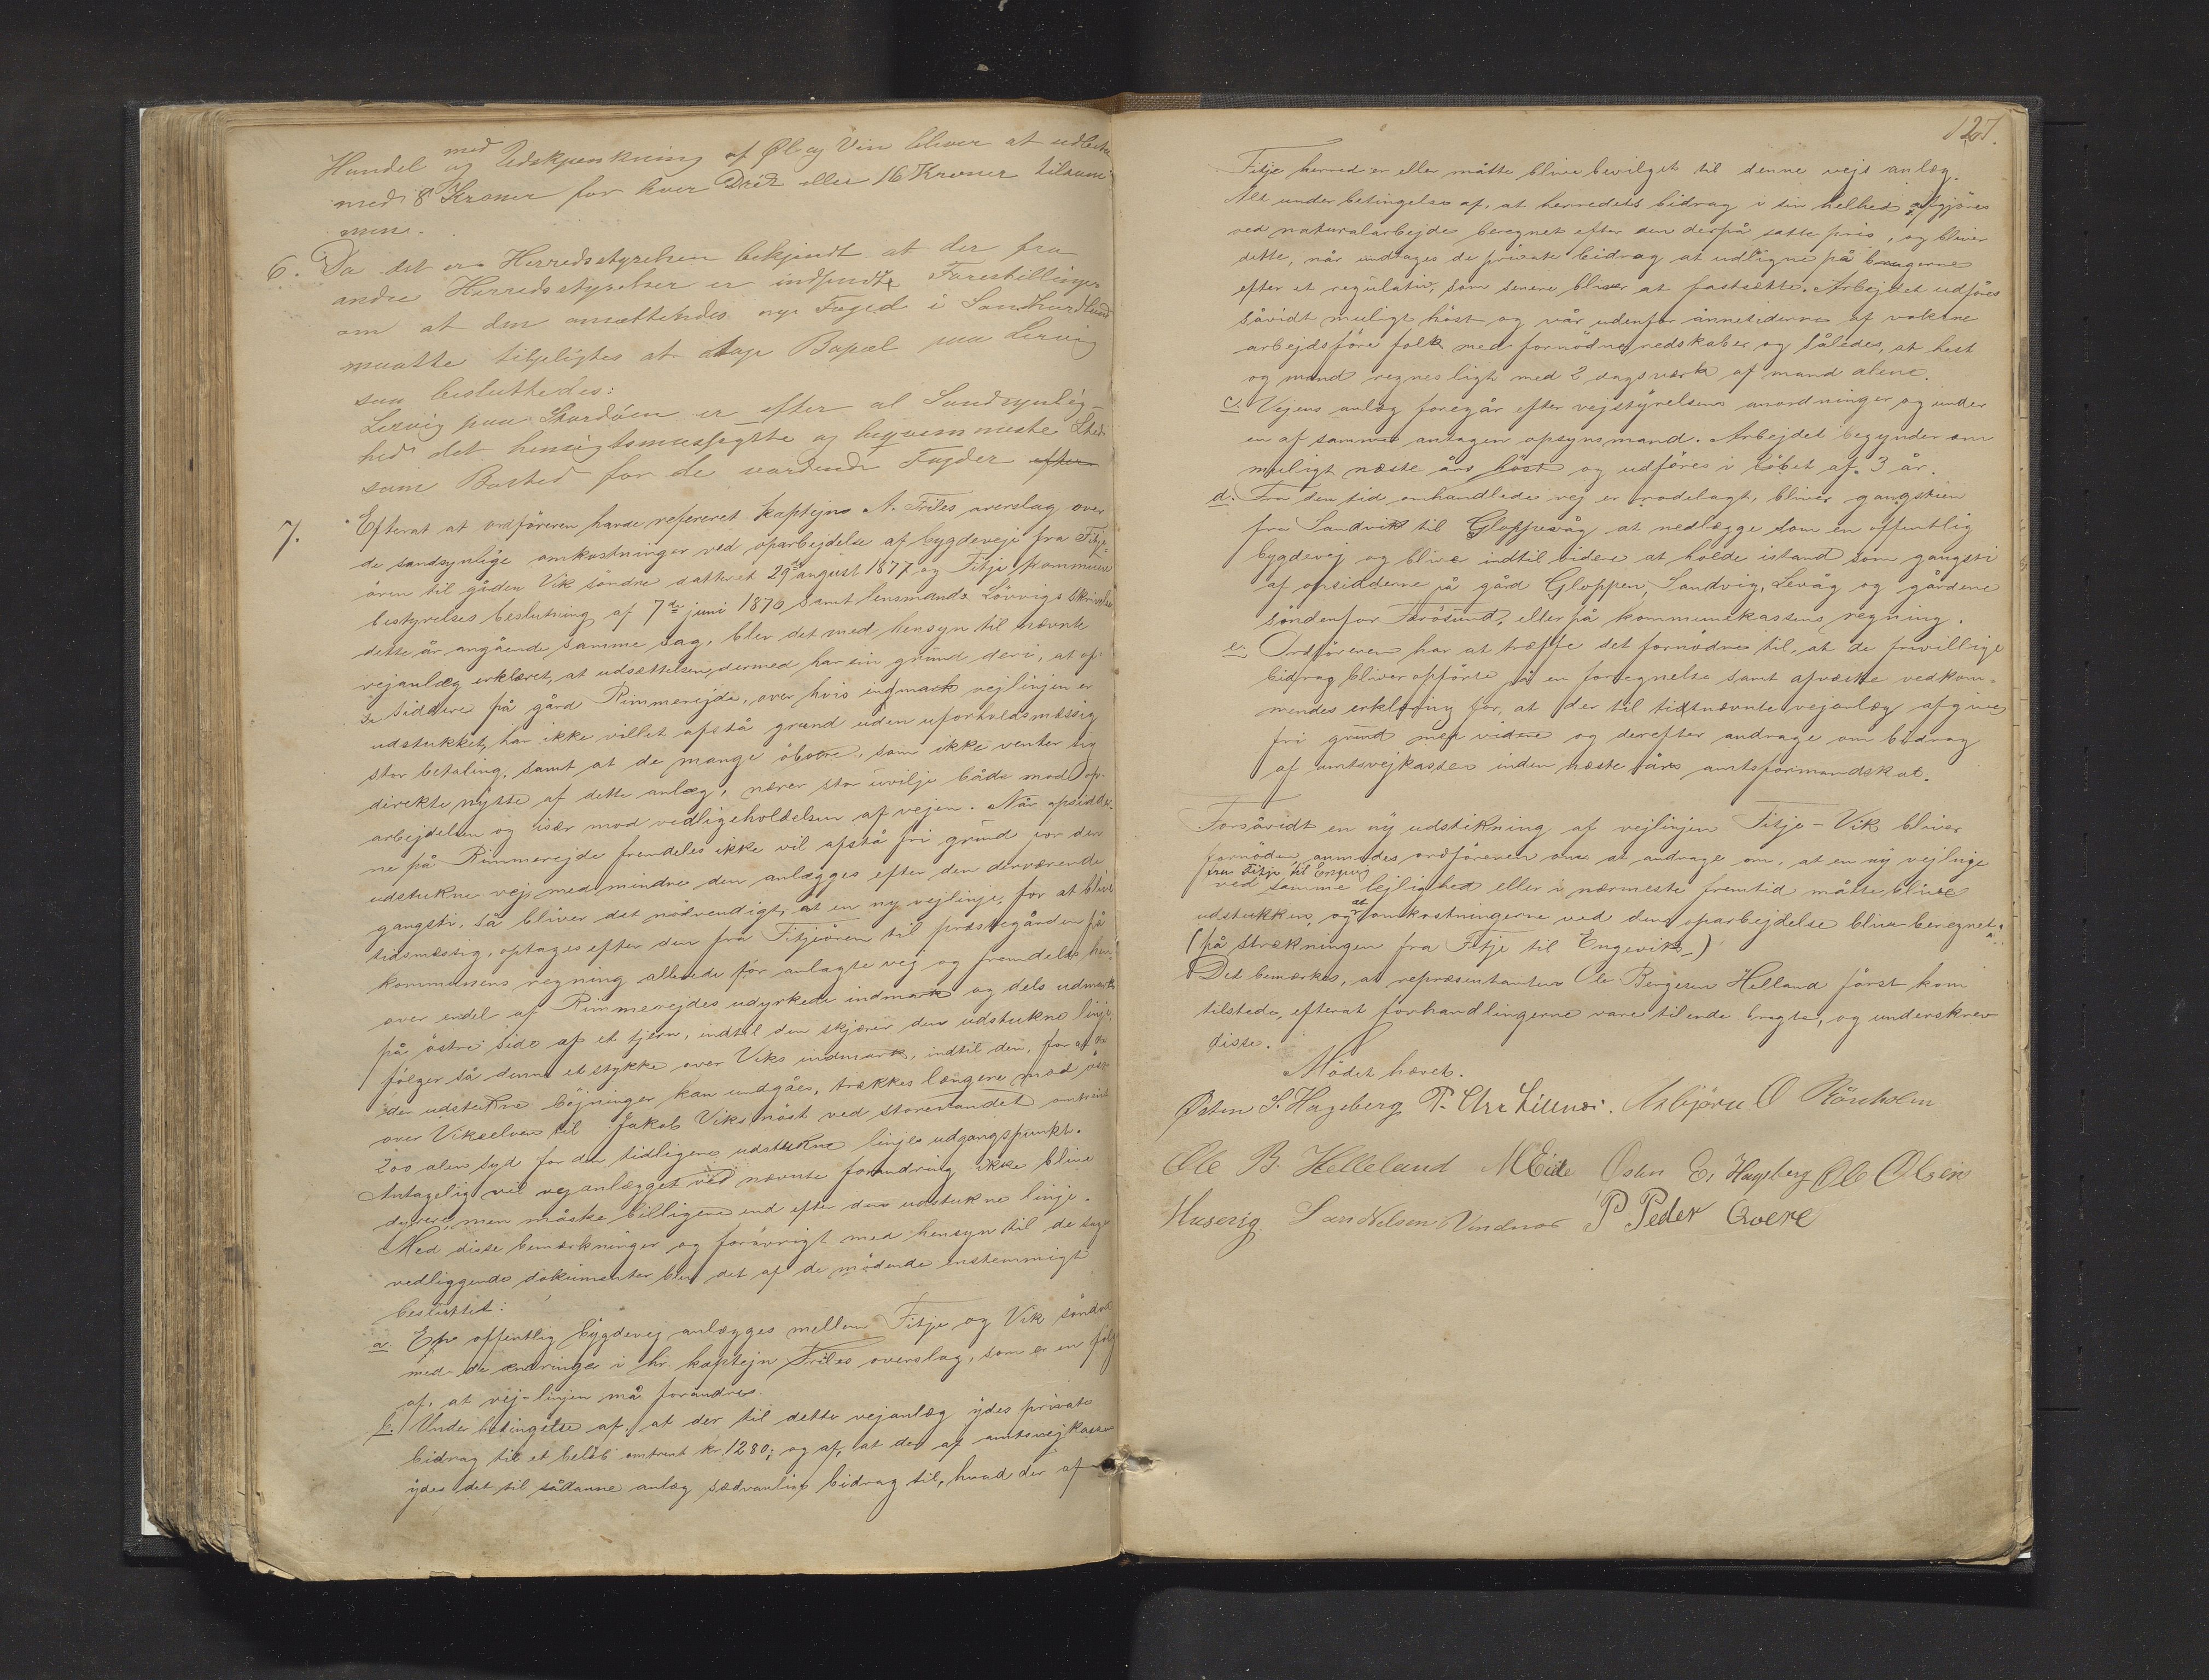 Handel med og Udskjænkning af Øl og Vin bliver at udbetale
med 8 Kroner for hver Drik eller 16 Kroner tilsam-
men.
6. Da det er Herredsstyrelsen bekjendt at der fra
andre Herredsstyrelser er indsendte Forestillinger
om at den ansættendes nye Foged i Søndhordland
maatte tilpligtes at tage Bopæl paa Lervig
saa besluttedes:
Lervig paa Stordöen er efter al Sandsynlig-
hed det hensigtsmæssigste og beqvemmeste Sted
som Bosted for de vordende Fogder efter
7. Efterat at ordföreren havde refereret kaptejn A. Friles overslag over
de sandsynlige omkostninger ved oparbejdelse af bygdeveje fra Fitje-
ören til gården Vik söndre datteret 29de august 1877 og Fitje kommune
bestyrelses beslutning af 7de juni 1870 samt lensmands Lövvigs skrivelse
dette år angående samme sag, blev det med hensyn til nævnte
vejanlæg erklæret, at udsættelsen dermed har sin grund deri, at op-
siddere på gård Rimmerejde, over hvis indmark vejlinjen er
udstukket, har ikke villet afstå grund uden uforholdsmæssig
stor betaling, samt at de mange åboere, som ikke venter sig
direkte nytte af dette anlæg, nærer stor uvilje både mod op-
arbejdelsen og især mod vedligeholdelsen af vejen. Når opsidder-
ne på Rimmerejde fremdeles ikke vil afstå fri grund for den
udstukne vej, med mindre den anlægges efter den derværende
gangsti, så bliver det nödvendigt, at en ny vejlinje, for at blive
tidsmæssig, optages efter den fra Fitjeören til præstegården på
kommunens regning allerede för anlagte vej og fremdeles hen-
over endel af Rimmerejdes udyrkede indmark og dels udmark
på östre side af et tjern, indtil den skjærer den udstukne linje,
fölger så denne et stykke over Viks indmark, indtil den, for at de
der udstukne böjninger kan undgåes, trækkes længere mod
over Vikselven til Jakob Viks nöst ved storestandet omtrent
200 alen syd for den tidligere udstukne linjes udgangspunkt.
Antagelig vil vejanlægget ved nævnte forandring ikke blive
dyrere, men måske billigere end efter den udstukne linje.
Med disse bemærkninger og forövrigt med hensyn til de sagen
vedliggende dokumenter blev det af de mödende enstemmigt
besluttet:
a. En offentlig bygdevej anlægges mellem Fitje og Vik söndre
med de ændringer i hr. kaptejn Friles overslag, som er en fölge
af, at vej-linjen må forandres.
b. Under betingelse af, at der til dette vejanlæg ydes private
bidrag til et belöb omtrent kr. 1280; og af, at der af amtsvejkassen
ydes det til sådanne anlæg sædvanlige bidrag til, hvad der af
127.
Fitje herred er eller måtte blive bevilget til denne vejs anlæg.
Alt under betingelse af, at herredets bidrag i sin helhed afgjöres
ved naturalarbejde beregnet efter den derpå satte pris, og bliver
dette, når undtages de private bidrag at udligne på brugerne
efter et regulativ, som senere bliver at fastsætte. Arbejdet udföres
såvidt muligt höst og vår udenfor ånnetiderne af voksne
arbejdsföre folk med fornödne redskaber og således, at hest
og mand regnes ligt med 2 dagsværk af mand alene.
c. Vejens anlæg foregår efter vejstyrelsens anordninger og under
en af samme antagen opsynsmand. Arbejdet begynder om
muligt næste års höst og udföres i löbet af 3 år.
d. Fra den tid omhandlede vej er rodelagt, bliver gangstien
fra Sandvik til Gloppevåg at nedlægge som en offentlig
bygdevej og blive indtil videre at holde istand som gangsti
af opsidderne på gård Gloppen, Sandvig, Levåg og gårdene
söndenfor Færösund, eller på kommunekassens regning.
e. Ordföreren har at træffe det fornödne til, at de frivillige
bidrag bliver opförte på en fortegnelse samt afæske vedkom-
mendes erklæring for, at der til tidtnævnte vejanlæg afgives
fri grund med videre og derefter andrage om bidrag
af amtsvejkassen inden næste års amtsformandskab.
Forsåvidt en ny udstikning af vejlinjen Fitje-Vik bliver
fornöden anmodes ordföreren om at andrage om, at en ny vejlinje
fra Fitje til Engevig
ved samme lejlighed eller i nærmeste fremtid måtte blive
udstukken, og at omkostningerne ved dens oparbejdelse blive beregnet.
(på strækningen fra Fitje til Engevik)
Det bemærkes, at repræsentanten Ole Bergesen Helland först kom
tilstede, efterat forhandlingerne vare tilende bragte, og underskrev
disse.
Mödet hævet.
Østen S. Hageberg P. Chr Asbjörn O Rörholm
Ole B. Helleland M Eide Østen E. Hageberg Ole Olsen
Lars Nelsen P Peder Qvere